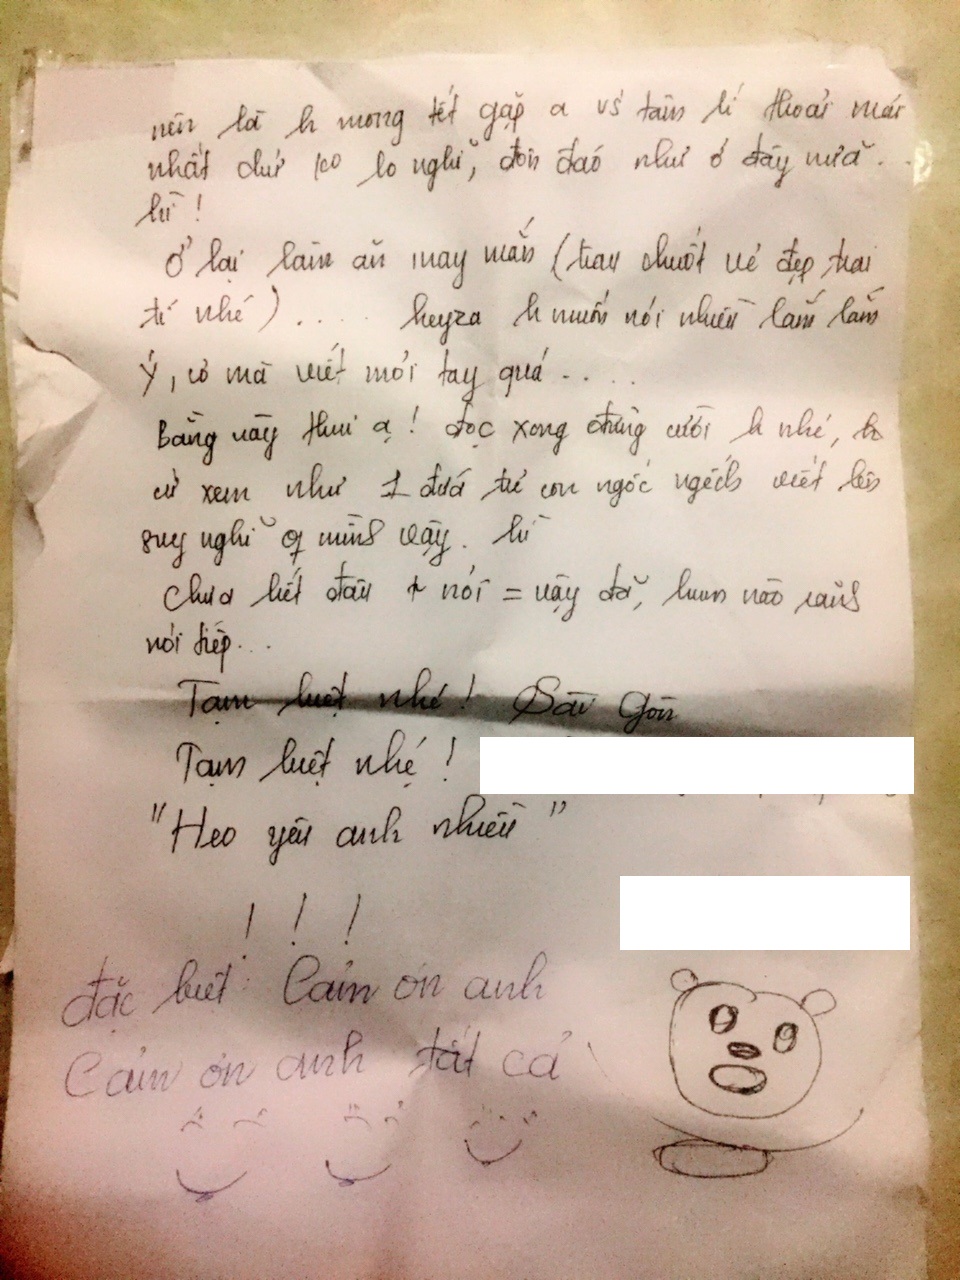 nên là h mong tết gặp a vs tâm lí thoải mái
nhất chứ ko lo nghĩ, đôn đáo như ở đây nữa...
hì!
Ở lại làm ăn may mắn (trau chuốt vẻ đẹp trai
tí nhé).... heyza h muốn nói nhiều lắm lắm
ý, cơ mà viết mỏi tay quá....
Bằng này thui ạ! đọc xong đừng cười h nhé, h
cứ xem như 1 đứa trẻ con ngốc nghếch viết lên
suy nghĩ of mình vậy. hì
chưa hết đâu nói = vậy đã, hum nào rảnh
nói tiếp...
Tạm biệt nhé! Sài Gòn
Tạm biệt nhé!
"Heo yêu anh nhiều"
! ! !
đặc biệt: Cảm ơn anh
Cảm ơn anh tất cả